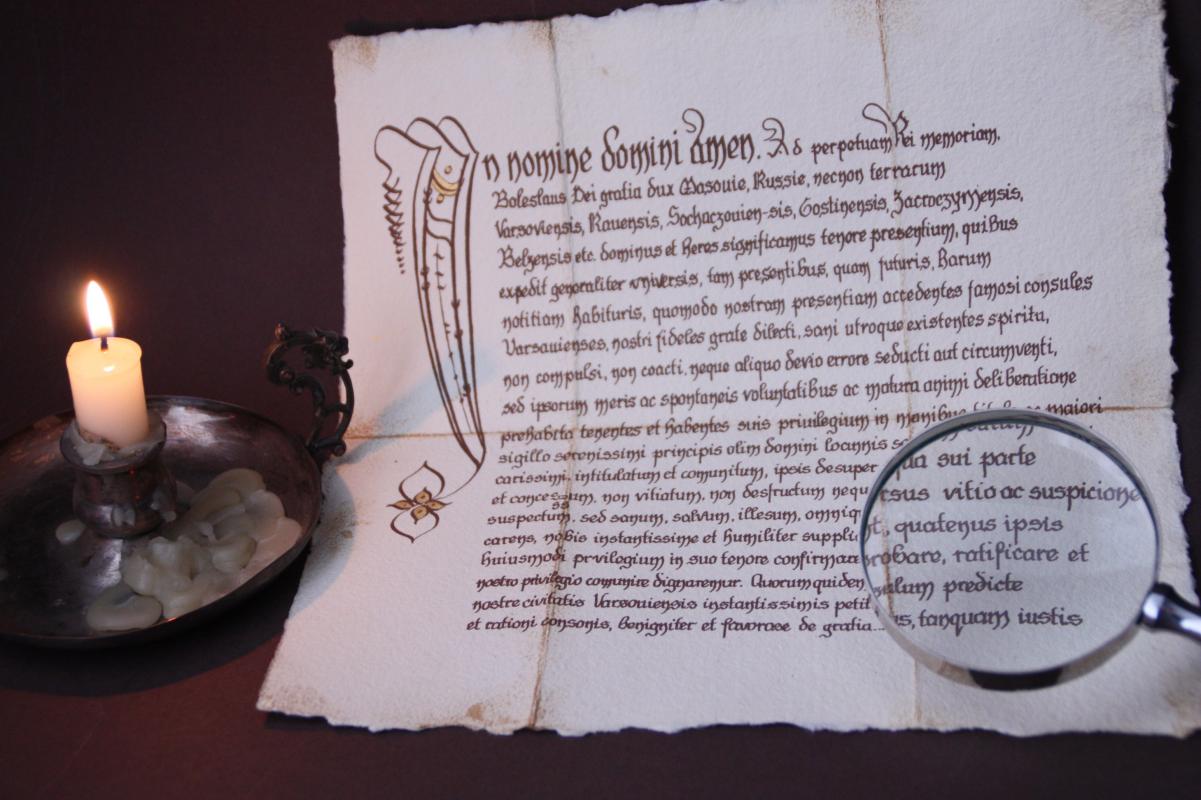 In nomine domini Amen. Ad perpetuam Rei memoriam.
Boleslaus Dei gratia dux Masouie, Russie, necnon terrarum
Varsoviensis, Rauensis, Sochaczouien-sis, Gostinensis, Zacroczymensis,
Belzensis etc. dominus et heres significamus tenore presentium, quibus
expedit generaliter vniversis, tam presentibus, quam futuris, harum
notitiam habituris, quomodo nostram presentiam accedentes famosi consules
Varsauienses, nostri fideles grate dilecti, sani utroque existentes spiritu,
non compulsi, non coacti, neque aliquo devio errore seducti aut circumventi,
sed ipsorum meris ac spontaneis voluntatibus ac matura animi deliberatione
prehabita tenentes et habentes suis priuilegium in manibus maiori
sigillo serenissimi principis olim domini Ioannis
carissimi, intitulatum et comunitum, ipsis desuper qua sui parte
et concessum, non vitiatum, non destructum rsus vitio ac suspicione
suspectum. sed sanum, salvum, illesum, quatenus ipsis
carens, nobis instantissime et humiliter robare, ratificare et
huiusmodi prvilegium in suo tenore confirmare predicte
nostro privilegio comunire dignaremur. Quorum quidem
nostre civitatis Varsouiensis instantissimis petit us, tanquam iustis
et rationi consonis, benigniter et favorose de gratia...